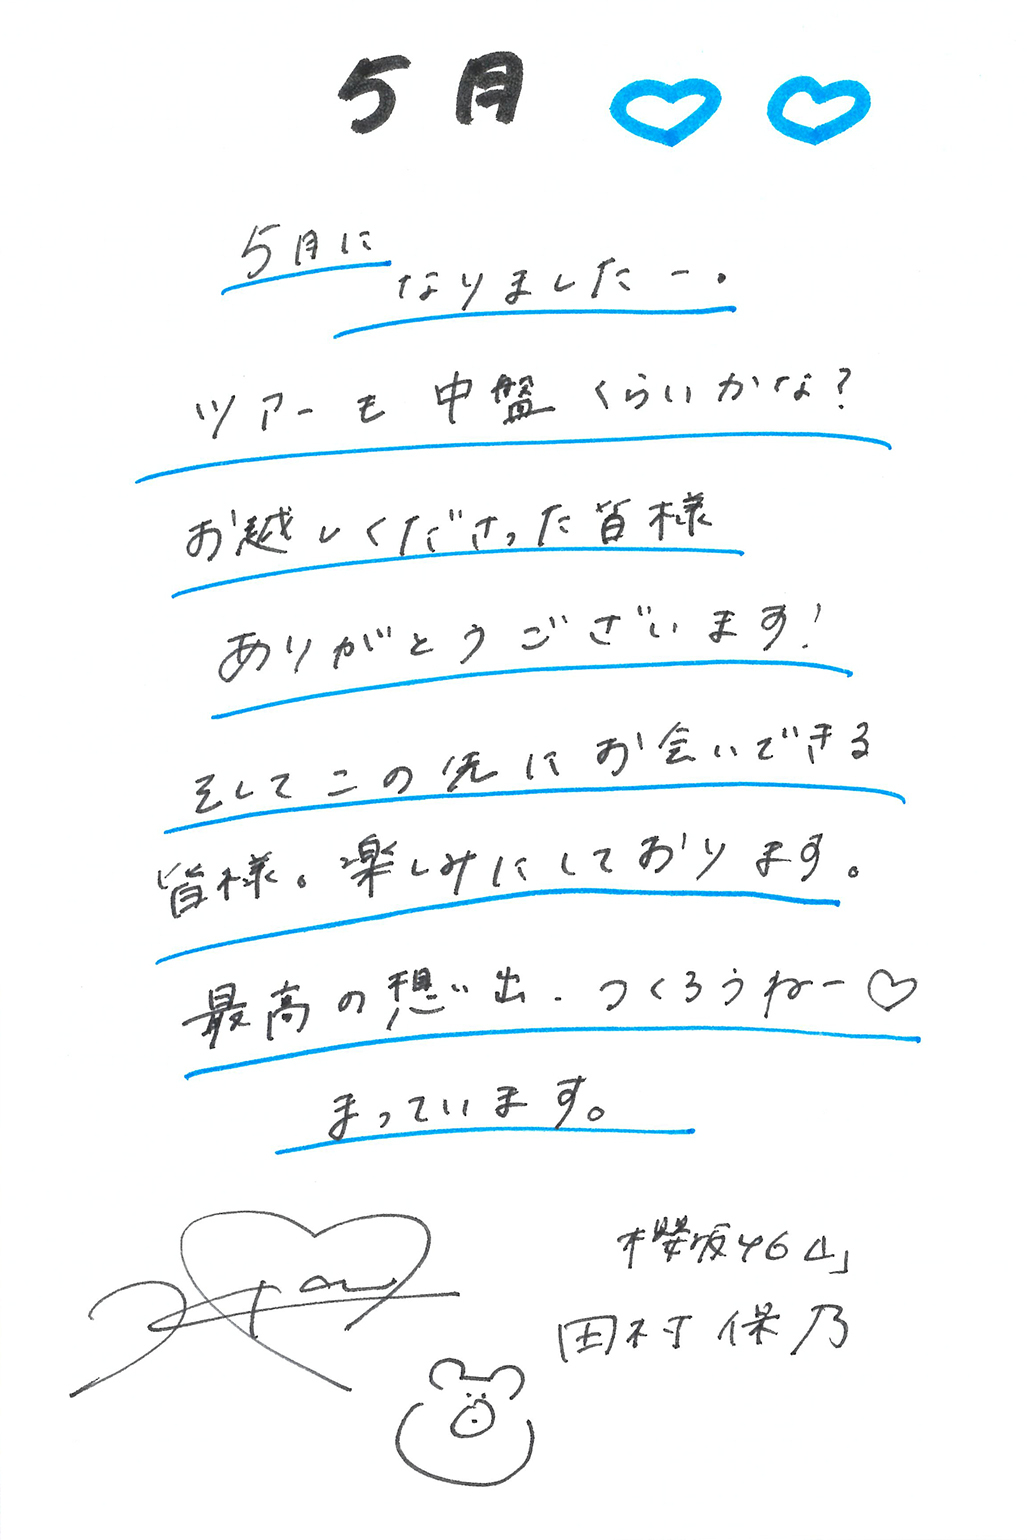 5月 ♡ ♡
5月に
なりましたー.
ツアーも 中盤 くらいかな?
お越しくださった皆様
ありがとうございます!
そしてこの先にお会いできる
皆様。楽しみにしております。
最高の想い出. つくろうねー♡
まっています。
櫻坂46
田村保乃